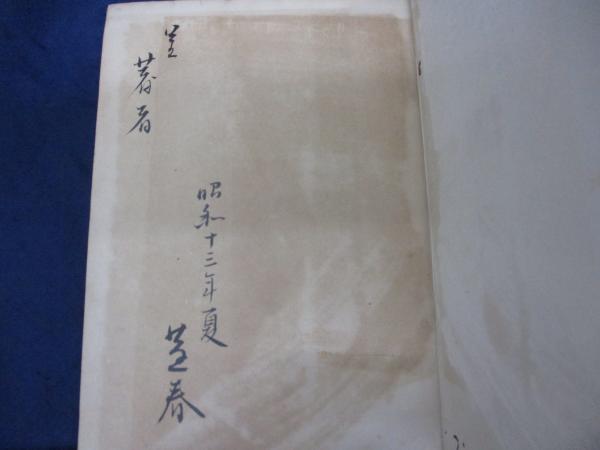 昭和十三年夏
春
呈
著者